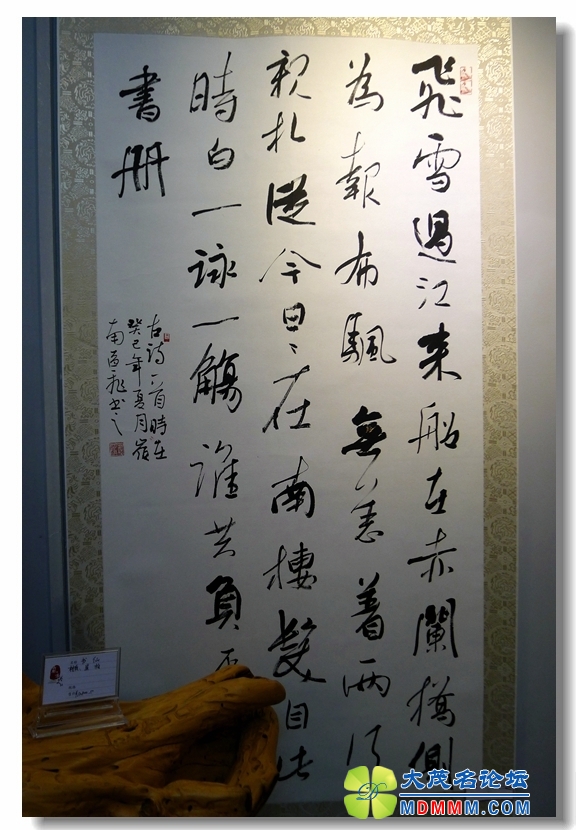 飛雪過江来船在赤闌橋側
為報布颿無恙着兩行
親札從今日〻在南樓鬢自此
時白一詠一觴誰共負
書册
古詩一首時在
癸巳年夏月嶺
南 书之
大茂名论坛
MDMMM.COM